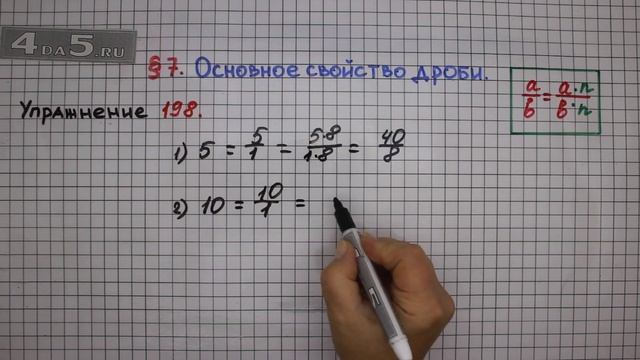 4DA5.RU
§7. Основное свойство дроби.
Упражнение 198.
a/b = a·n/b·n
1) 5 = 5/1 = 5·8/1·8 = 40/8
2) 10 = 10/1 =